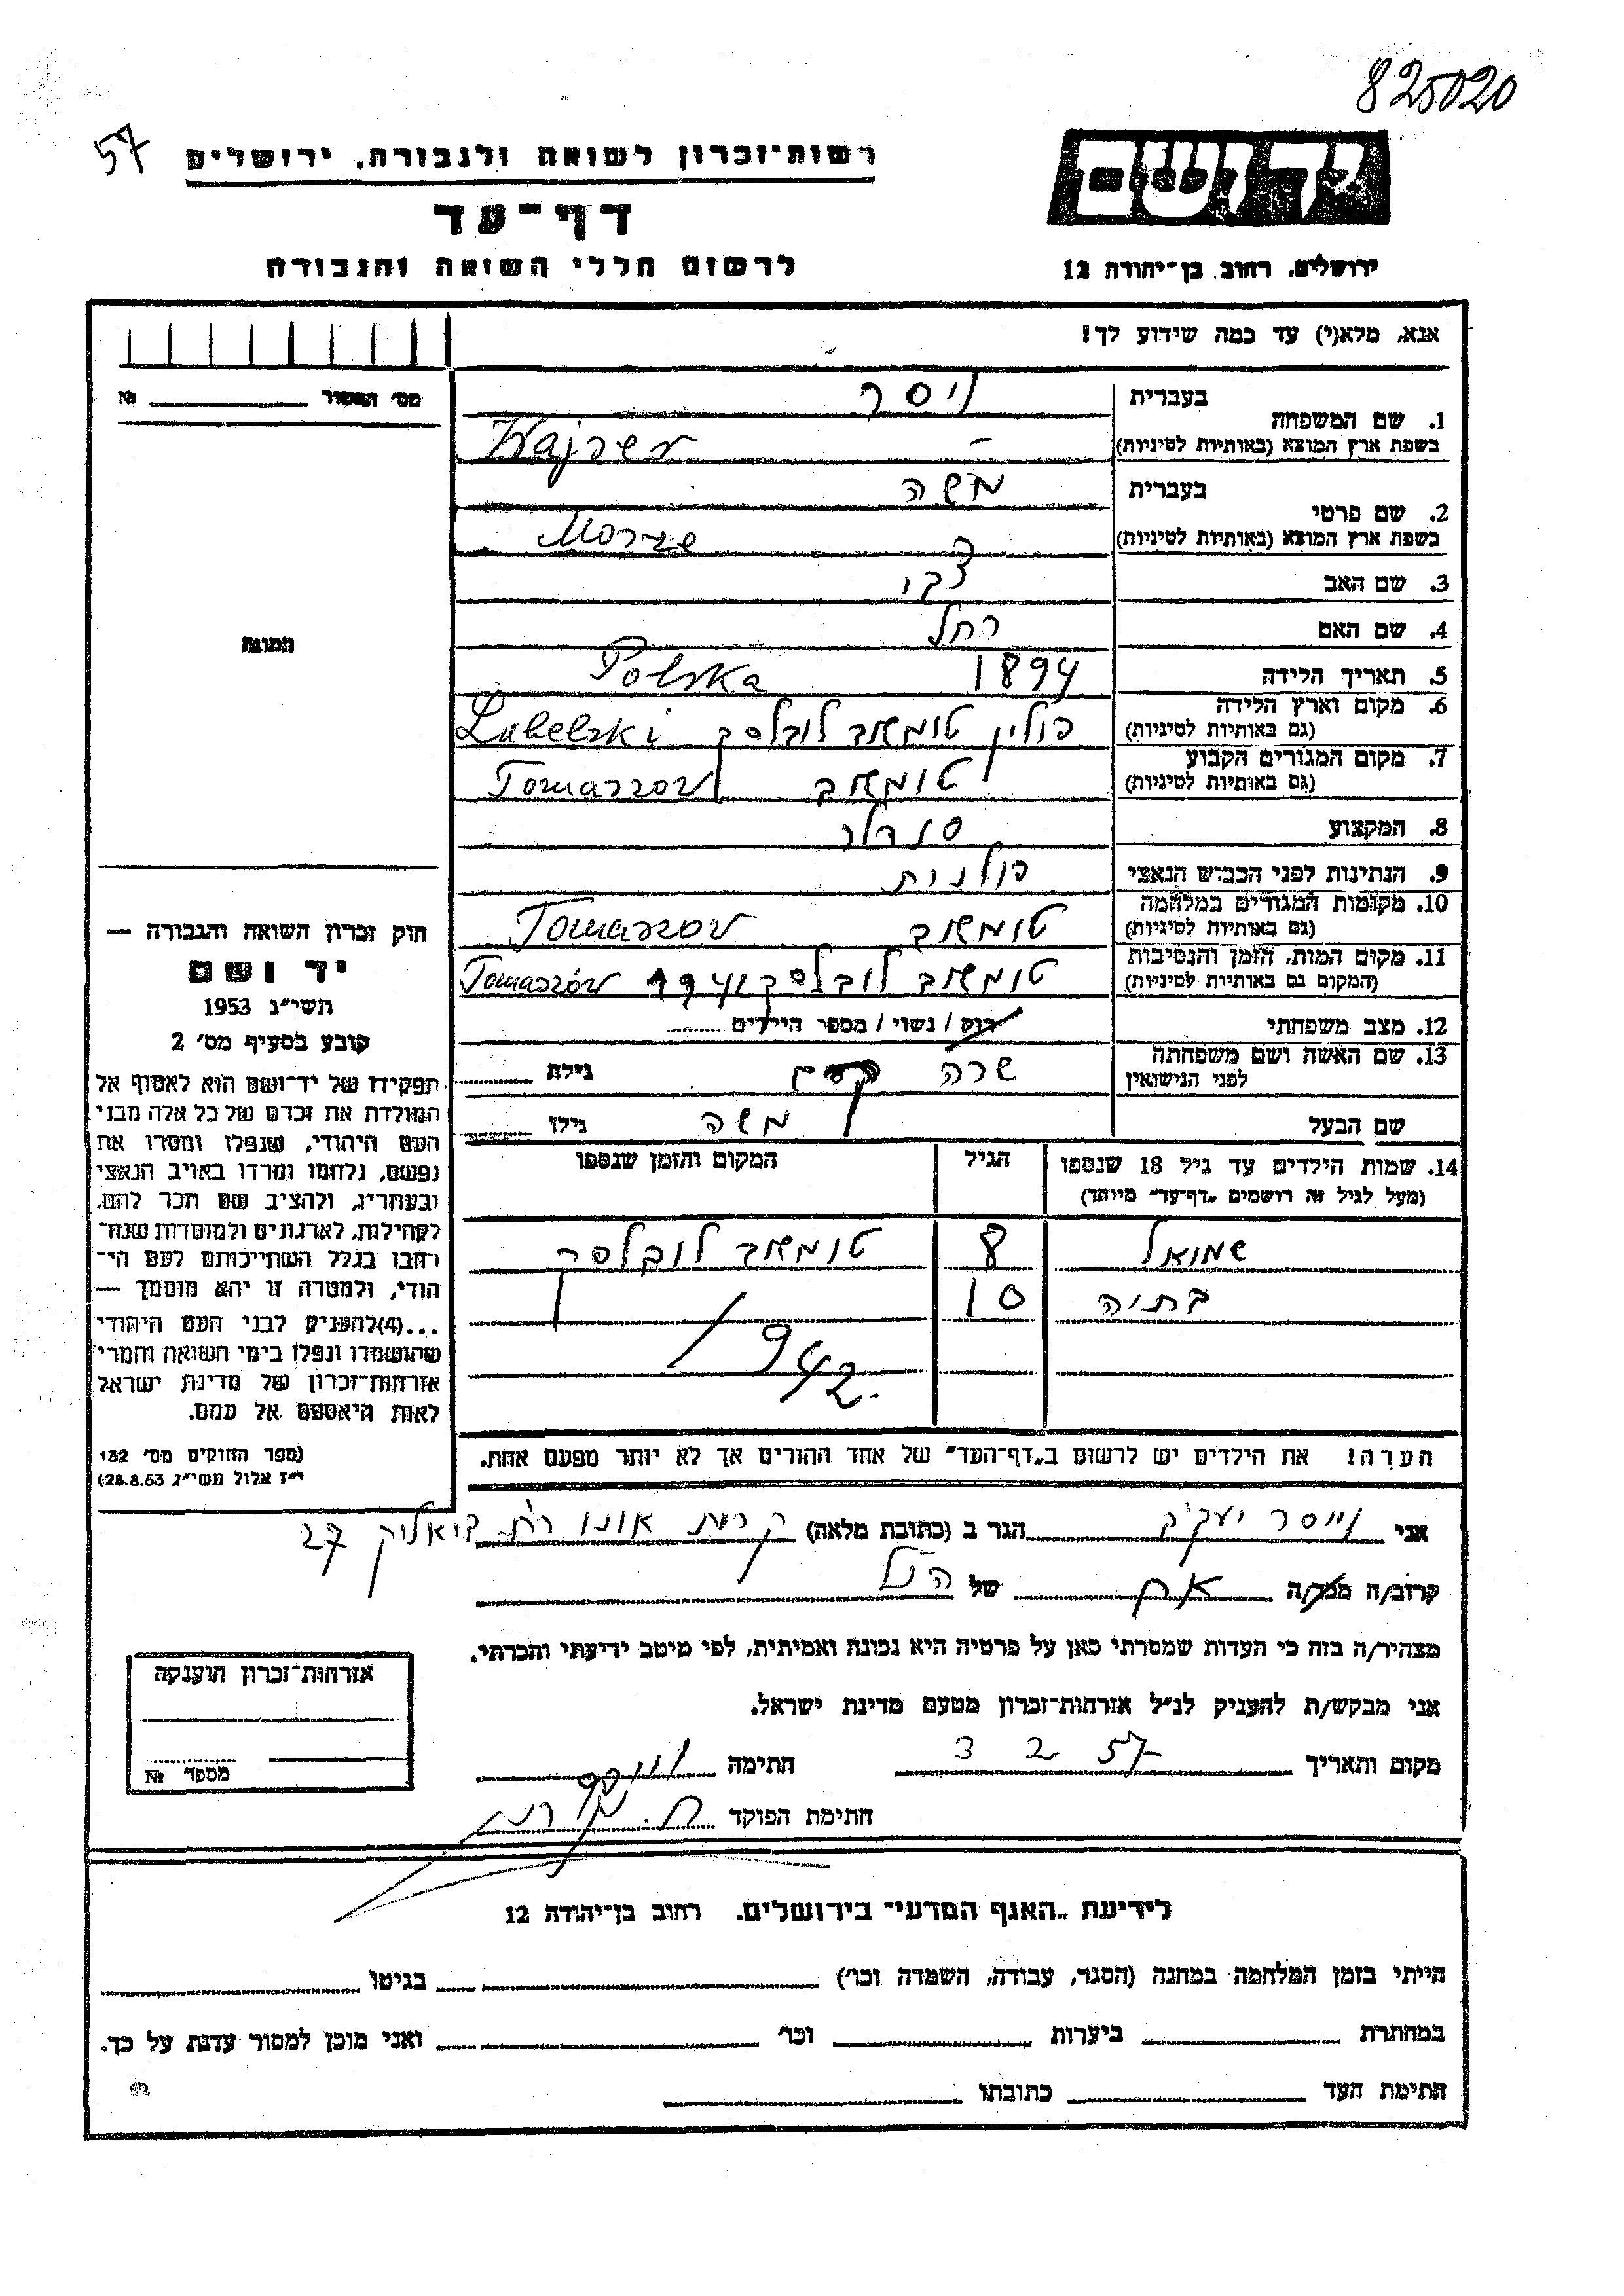 825020
57
רשות־זכרון לשואה ולגבורה. ירושלים
יד ושם
דף־עד
לרשום חללי השואה והגבורה
ירושלים, רחוב בן־יהודה 12
אנא, מלא(י) עד כמה שידוע לך!
מס' האשור № 
1. שם המשפחה בעברית ויסר
בשפת ארץ המוצא (באותיות לטיניות) Wajser
2. שם פרטי בעברית משה
בשפת ארץ המוצא (באותיות לטיניות) Morze
3. שם האב צבי
4. שם האם רחל
5. תאריך הלידה 1894 Polska
6. מקום וארץ הלידה (גם באותיות לטיניות) פולין טומשוב לובלסק Lubelski
7. מקום המגורים הקבוע (גם באותיות לטיניות) טומשוב Tomaszow
8. המקצוע סנדלר
9. הנתינות לפני הכבוש הנאצי פולנית
10. מקומות המגורים במלחמה (גם באותיות לטיניות) טומשוב Tomaszow
11. מקום המות, הזמן והנסיבות (המקום גם באותיות לטיניות) טומשוב לובלסק Tomaszów
12. מצב משפחתי רוק / נשוי / מספר הילדים
13. שם האשה ושם משפחתה לפני הנישואין שרה גילה
שם הבעל משה גילו
14. שמות הילדים עד גיל 18 שנספו הגיל המקום והזמן שנספו
(מעל לגיל זה רושמים "דף־עד" מיוחד)
שמואל 8 טומשוב לובלסק
בתיה 10
1942.
הערה! את הילדים יש לרשום ב"דף־העד" של אחד ההורים אך לא יותר מפעם אחת.
תמונה
חוק זכרון השואה והגבורה —
יד ושם
תשי"ג 1953
קובע בסעיף מס' 2
תפקידו של יד־ושם הוא לאסוף אל
המולדת את זכרם של כל אלה מבני
העם היהודי, שנפלו ומסרו את
נפשם, נלחמו ומרדו באויב הנאצי
ובעוזריו, ולהציב שם וזכר להם,
לקהילות, לארגונים ולמוסדות שנח־
רבו בגלל השתייכותם לעם הי־
הודי, ולמטרה זו יהא מוסמך —
...(4) להעניק לבני העם היהודי
שהושמדו ונפלו בימי השואה והמרי
אזרחות־זכרון של מדינת ישראל
לאות היאספם אל עמם.
(ספר החוקים מס' 132
י"ז אלול תשי"ג 28.8.53)
אני וייסר יעקב הגר ב (כתובת מלאה) קרית אונו רח' ביאליק 27
קרוב/ה מכר/ה אח של הנ"ל
מצהיר/ה בזה כי העדות שמסרתי כאן על פרטיה היא נכונה ואמיתית, לפי מיטב ידיעתי והכרתי.
אני מבקש/ת להעניק לנ"ל אזרחות־זכרון מטעם מדינת ישראל.
מקום ותאריך 3 2 57 חתימה
חתימת הפוקד
אזרחות־זכרון הוענקה
מספר №
לידיעת "האגף המדעי" בירושלים. רחוב בן־יהודה 12
הייתי בזמן המלחמה במחנה (הסגר, עבודה, השמדה וכו') בגיטו
במחתרת ביערות וכו' ואני מוכן למסור עדות על כך.
חתימת העד כתובתו